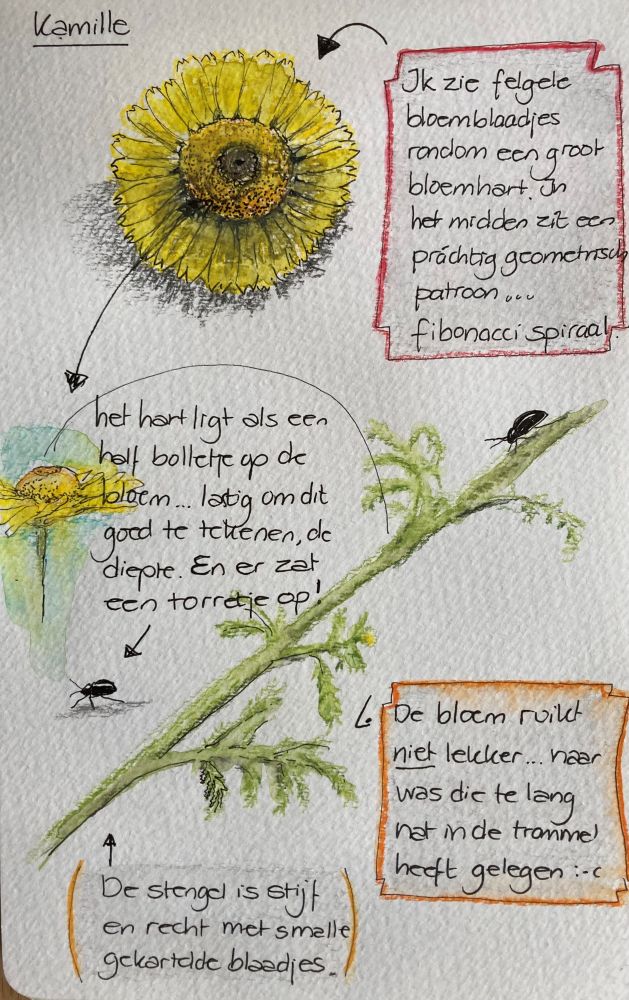 Kamille
Ik zie felgele
bloemblaadjes
rondom een groot
bloemhart. In
het midden zit een
práchtig geometrisch
patroon...
fibonacci spiraal.
het hart ligt als een
half bolletje op de
bloem... lastig om dit
goed te tekenen, de
diepte. En er zat
een torretje op!
De bloem ruikt
niet lekker... naar
was die te lang
nat in de trommel
heeft gelegen :-c
De stengel is stijf
en recht met smalle
gekartelde blaadjes.